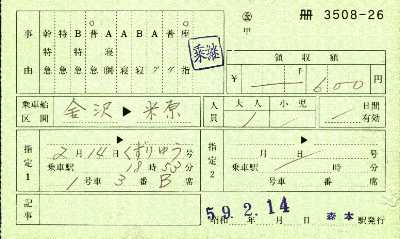 冊 3508-26
事 幹 特 B 普 A B A 普 座
特 特 寝
由 急 急 急 急 個 寝 寝 グ グ 指
乗継
甲
領収額
¥ 千 600 円
乗車船区間 金沢 ▶ 米原
人員 大人 小児
1
日間有効
指定1 ▶
2月14日 くずりゅう 号
乗車駅 18時53分
1号車 3番 B席
指定2 ▶
月 日 号
乗車駅 時 分
号車 番 席
記事
59.2.14
昭和 年 月 日 森本 駅発行